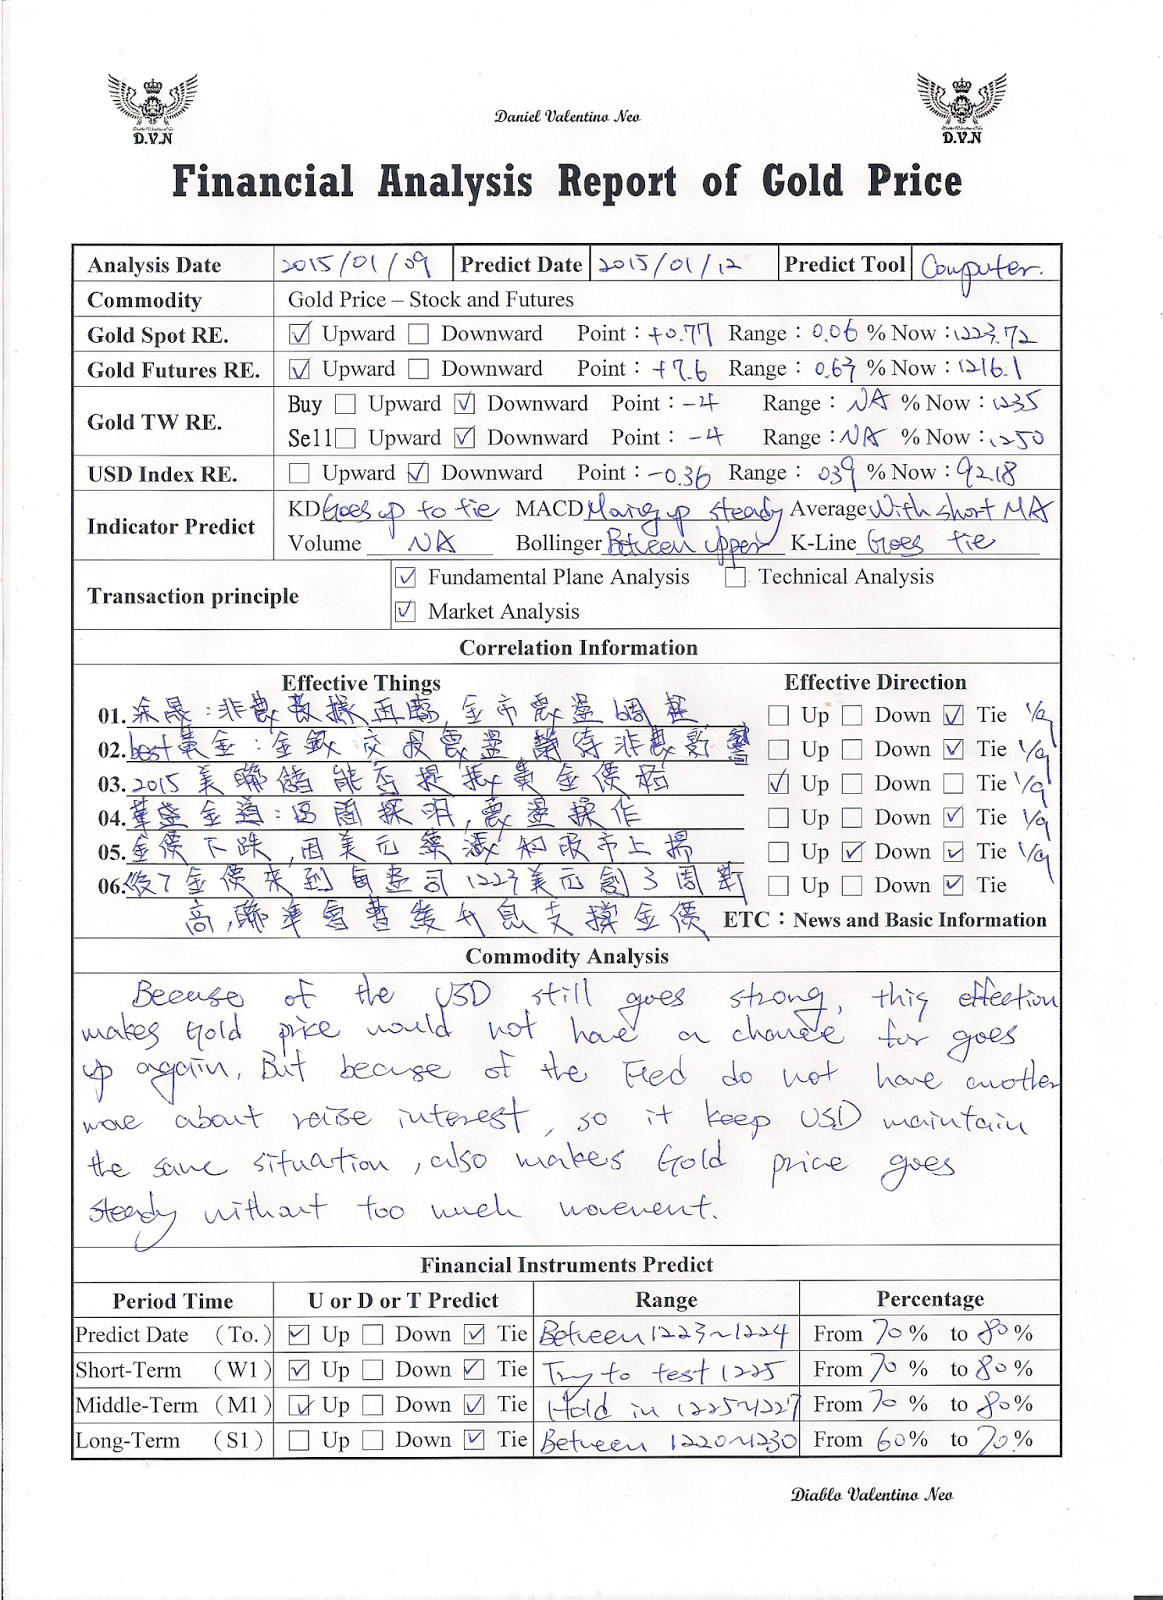 Daniel Valentino Neo
D.V.N
D.V.N
Financial Analysis Report of Gold Price
Analysis Date 2015/01/09 Predict Date 2015/01/12 Predict Tool Computer.
Commodity Gold Price – Stock and Futures
Gold Spot RE. ☑ Upward ☐ Downward Point：+0.77 Range：0.06 % Now：1223.72
Gold Futures RE. ☑ Upward ☐ Downward Point：+7.6 Range：0.63 % Now：1216.1
Gold TW RE.
Buy ☐ Upward ☑ Downward Point：-4 Range：NA % Now：1235
Sell ☐ Upward ☑ Downward Point：-4 Range：NA % Now：1250
USD Index RE. ☐ Upward ☑ Downward Point：-0.36 Range：039 % Now：92.18
Indicator Predict
KD Goes up to tie MACD Moving up steady Average With short MA
Volume NA Bollinger Between upper K-Line Goes tie
Transaction principle
☑ Fundamental Plane Analysis ☐ Technical Analysis
☑ Market Analysis
Correlation Information
Effective Things Effective Direction
01. 余晟：非農數據再臨, 金市震盪 ☐ Up ☐ Down ☑ Tie 1/9
02. best黃金：金銀交投震盪 靜待非農數 ☐ Up ☐ Down ☑ Tie 1/9
03. 2015 美聯儲能否提振黃金價格 ☑ Up ☐ Down ☐ Tie 1/9
04. 華盛金道：區間探明, 震盪操作 ☐ Up ☐ Down ☑ Tie 1/9
05. 金價下跌, 因美元築漲和股市上揚 ☐ Up ☑ Down ☑ Tie 1/9
06. 金價來到每盎司 1223美元創了周新 ☐ Up ☐ Down ☑ Tie
高, 聯準會暫緩升息支撐金價 ETC：News and Basic Information
Commodity Analysis
Because of the USD still goes strong, this effection
makes Gold price would not have a chance for goes
up again, But because of the Fed do not have another
move about raise interest, so it keep USD maintain
the same situation, also makes Gold price goes
steady without too much movement.
Financial Instruments Predict
Period Time U or D or T Predict Range Percentage
Predict Date (To.) ☑ Up ☐ Down ☑ Tie Between 1223~1224 From 70 % to 80 %
Short-Term (W1) ☑ Up ☐ Down ☑ Tie Try to test 1225 From 70 % to 80 %
Middle-Term (M1) ☑ Up ☐ Down ☑ Tie Hold in 1225~1227 From 70 % to 80 %
Long-Term (S1) ☐ Up ☐ Down ☑ Tie Between 1220~1230 From 60 % to 70 %
Diablo Valentino Neo